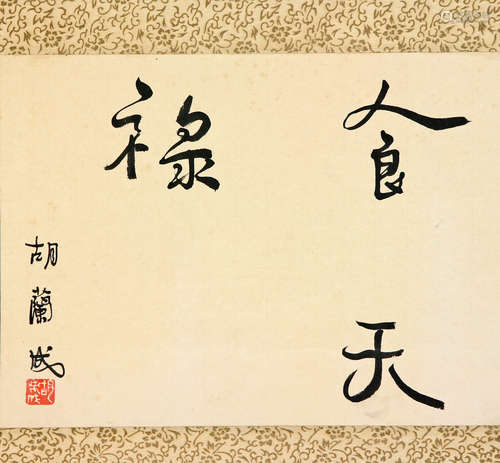 食天
祿
胡蘭成